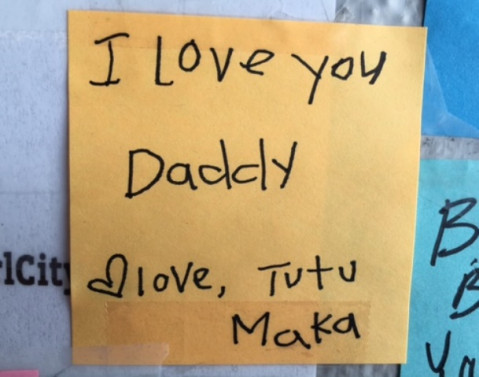 I Love you
Daddy
♡love, Tutu
Maka
lCity
B
B